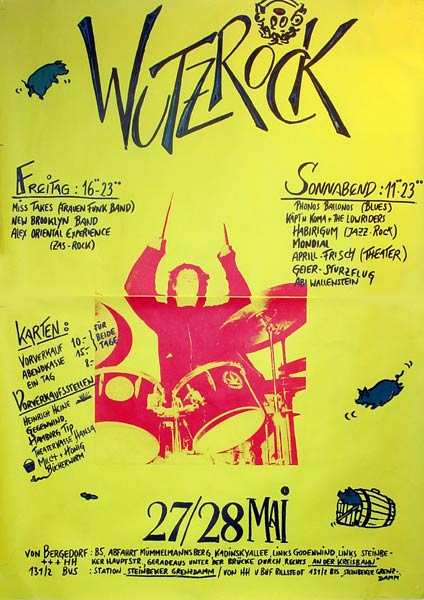 WUTZROCK
FREITAG: 16⁰⁰-23⁰⁰
MISS TAKES (FRAUEN FUNK BAND)
NEW BROOKLYN BAND
ALEX ORIENTAL EXPERIENCE
(ZAS-ROCK)
SONNABEND: 11⁰⁰-23⁰⁰
PHONOS BALLONOS (BLUES)
KÄPT'N KOMA + THE LOWRIDERS
HABIRIGUM (JAZZ-ROCK)
MONDIAL
APRILL-FRISCH (THEATER)
GEIER-STURZFLUG
ABI WALLENSTEIN
KARTEN:
VORVERKAUF 10.-
ABENDKASSE 15.-
FÜR BEIDE TAGE
EIN TAG 8.-
VORVERKAUFSSTELLEN
HEINRICH HEINE
GEGENWIND,
HAMBURG TIP
THEATERKASSE HANSA
MILCH + HONIG
BÜCHERWURM
27/28 MAI
VON BERGEDORF: B5, ABFAHRT MÜMMELMANNSBERG, KADINSKYALLEE, LINKS GODENWIND, LINKS STEINBE-
+++ HH KER HAUPTSTR., GERADEAUS UNTER DER BRÜCKE DURCH RECHTS AN DER KREISBAHN
131/2 BUS : STATION STEINBEKER GRENZDAMM / VON HH U BHF BILLSTEDT 131/2 BIS STEINBEKER GRENZ-
DAMM